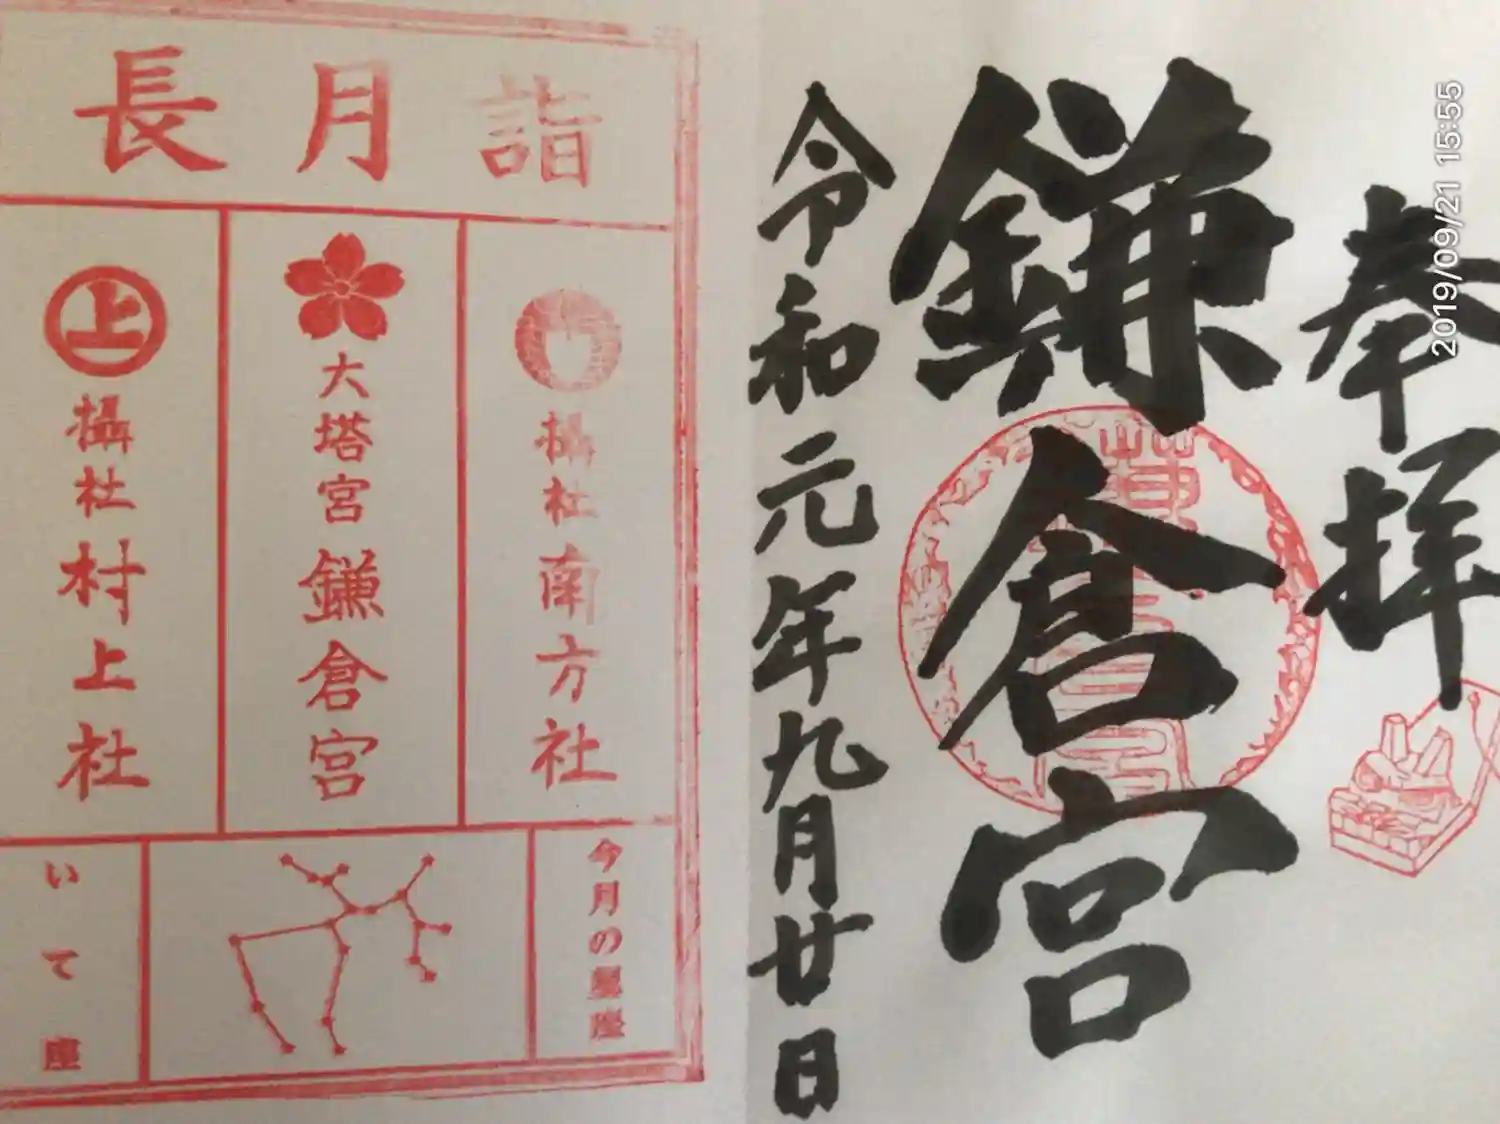 奉拝
鎌倉宮
令和元年九月廿日
長月詣
摂社南方社
大塔宮鎌倉宮
上
攝社村上社
今月の星座
いて座
2019/09/21 15:55